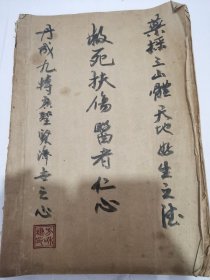 藥採三山體天地好生之德
救死扶傷醫者仁心
丹成九轉存聖賢濟世之心